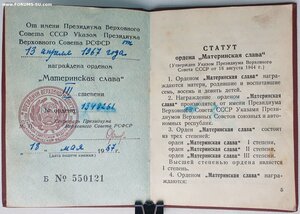 www.FORUMS-SU.com
От имени Президиума Верховного
Совета СССР Указом Президиума
Верховного Совета РСФСР
13 апреля 1967 года
награждена орденом
„Материнская слава"
III степени
№ ордена
Секретарь Президиума
Верховного Совета РСФСР
13 мая 1967 г.
Б № 550121
СТАТУТ
ордена „Материнская слава"
(Утвержден Указом Президиума Верховного
Совета СССР от 18 августа 1944 г.)
1. Орденом „Материнская слава" награждаются
матери, родившие и воспитавшие
семь, восемь и девять детей.
2. Награждение орденом „Материнская
слава" производится от имени Президиума
Верховного Совета СССР указами Президиумов
Верховных Советов союзных и автономных
республик.
3. Орден „Материнская слава" состоит
из трех степеней:
орден „Материнская слава" I степени,
орден „Материнская слава" II степени,
орден „Материнская слава" III степени.
4. Орденом „Материнская слава"
награждаются:
5